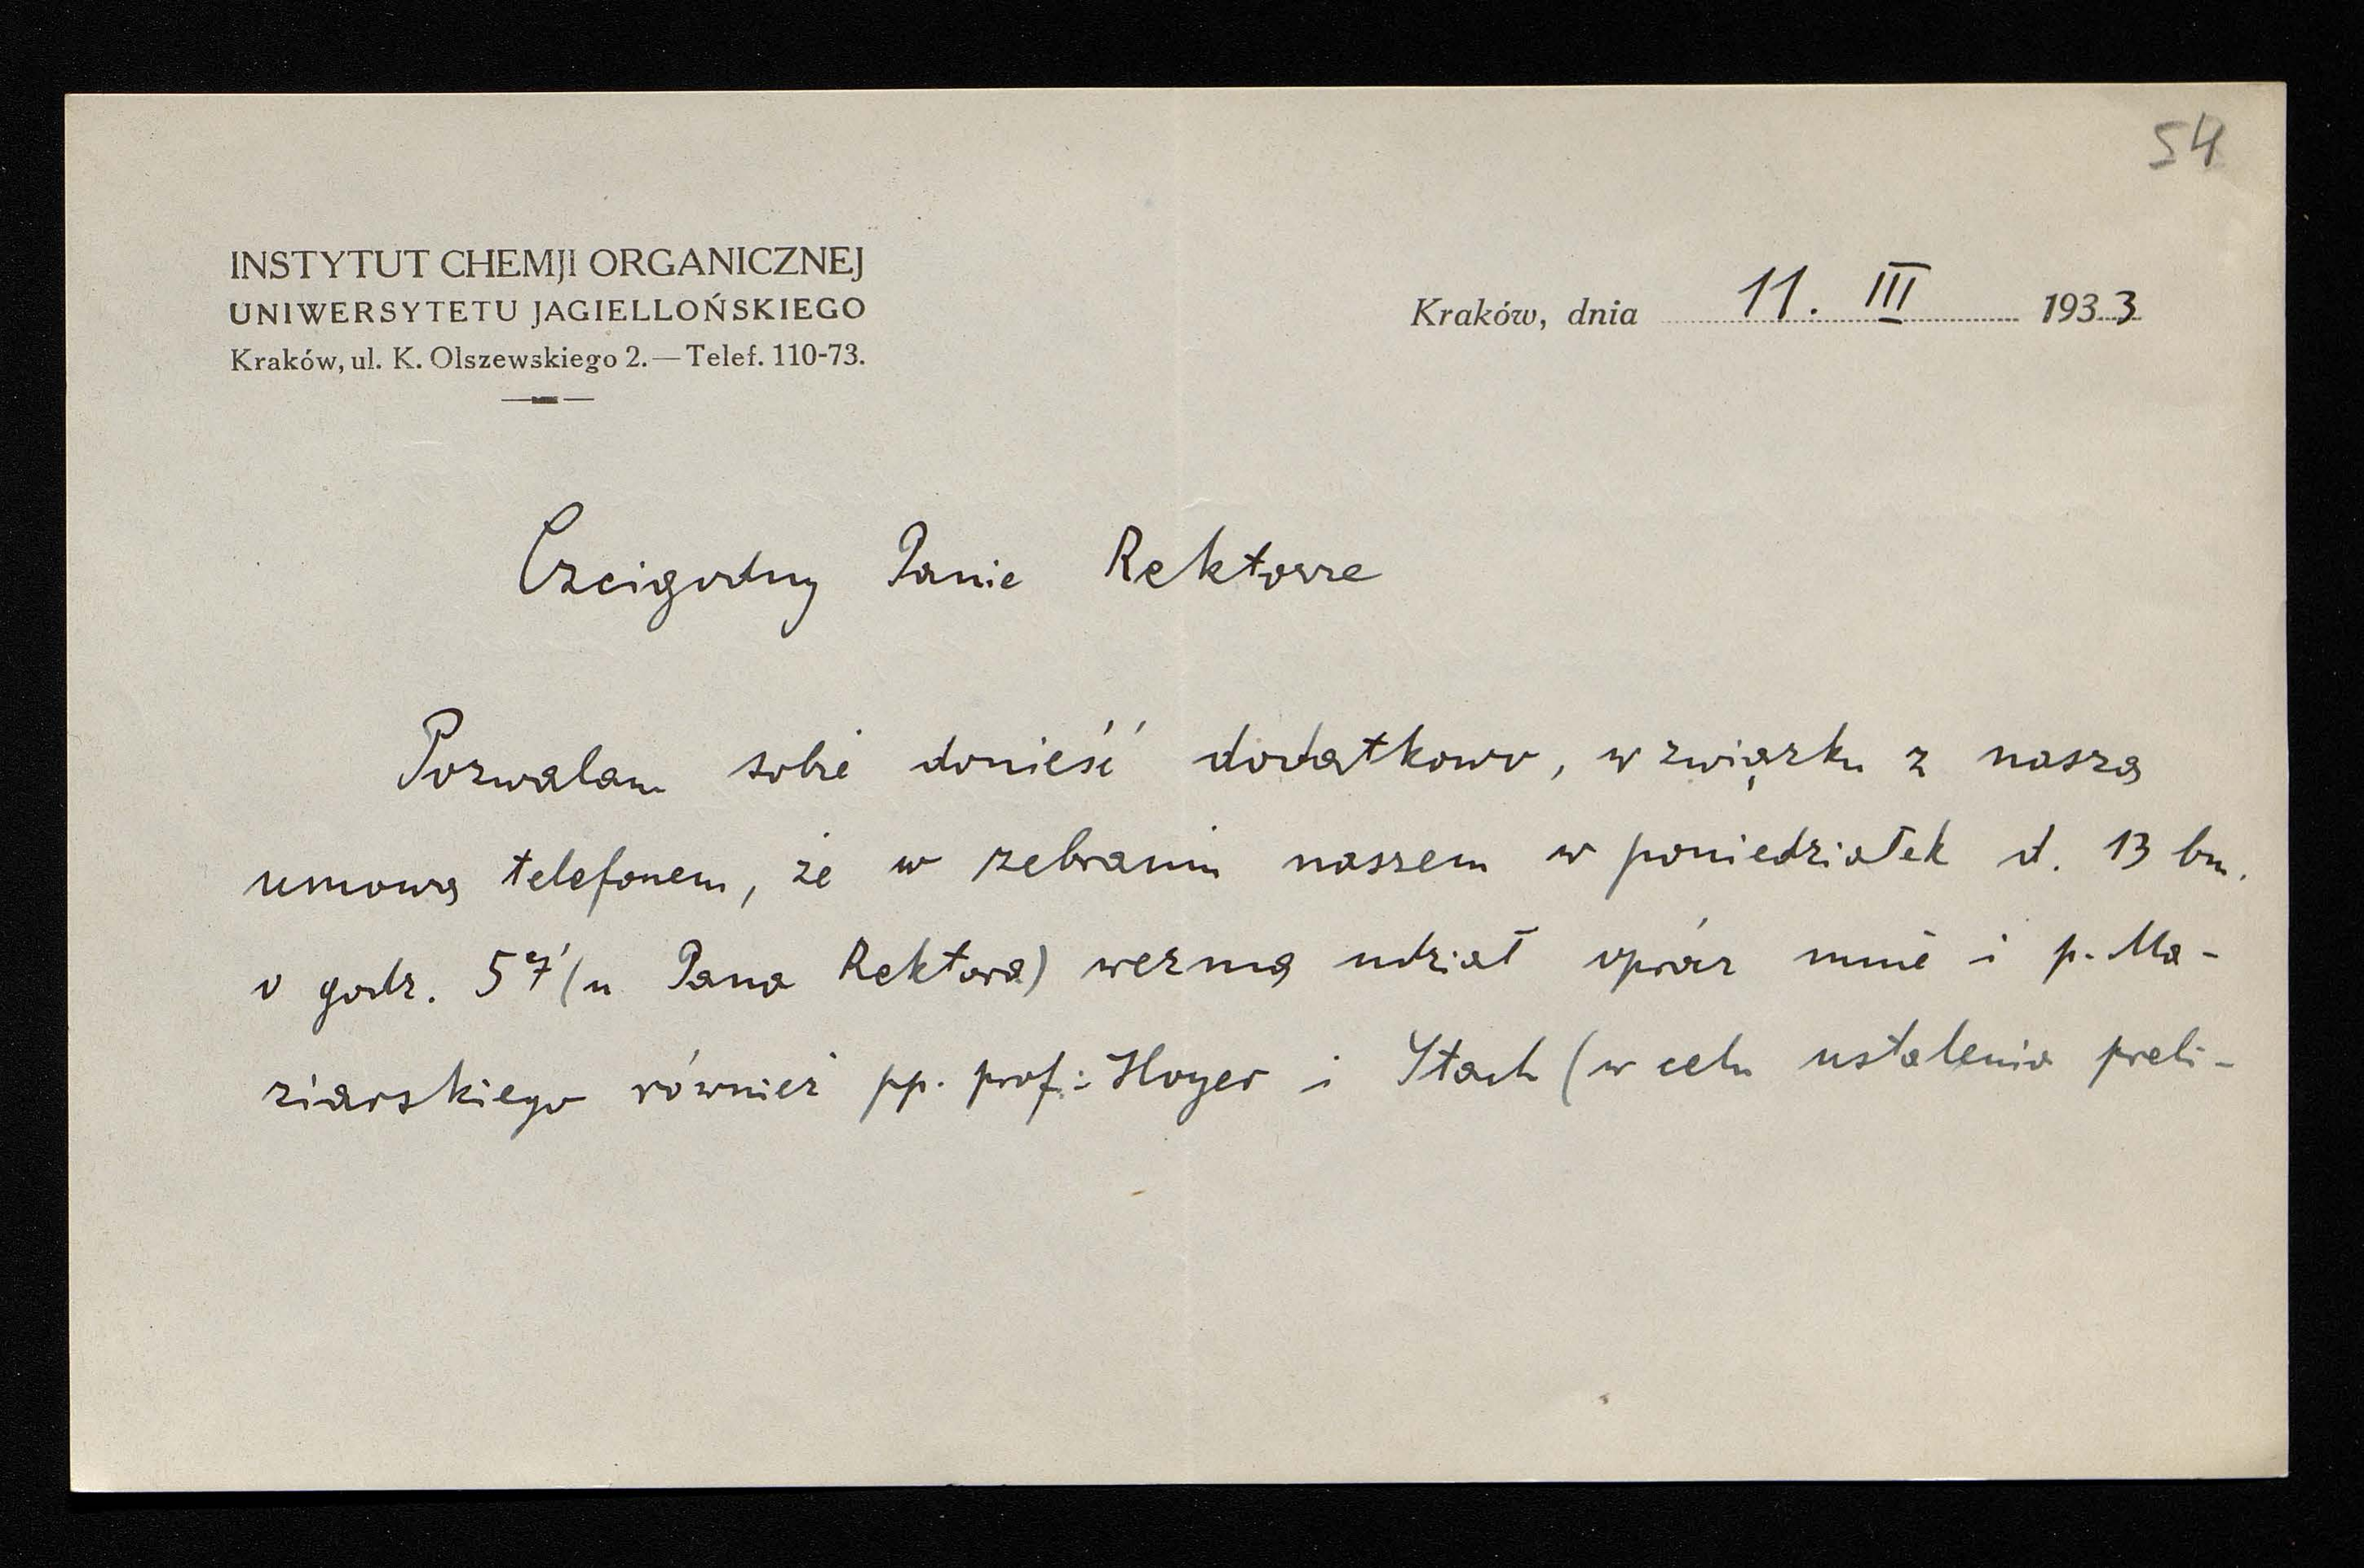 54
INSTYTUT CHEMJI ORGANICZNEJ
UNIWERSYTETU JAGIELLOŃSKIEGO
Kraków, ul. K. Olszewskiego 2. — Telef. 110-73.
Kraków, dnia 11. III 1933
Czcigodny Panie Rektorze
Pozwalam sobie donieść dodatkowo, w związku z naszą
umową telefonem, że w zebraniu naszem w poniedziałek d. 13 bm.
o godz. 5ej (u Pana Rektora) wezmą udział oprócz mnie i p. Ma-
ziarskiego również pp. prof: Hoyer i Stach (w celu ustalenia preli-